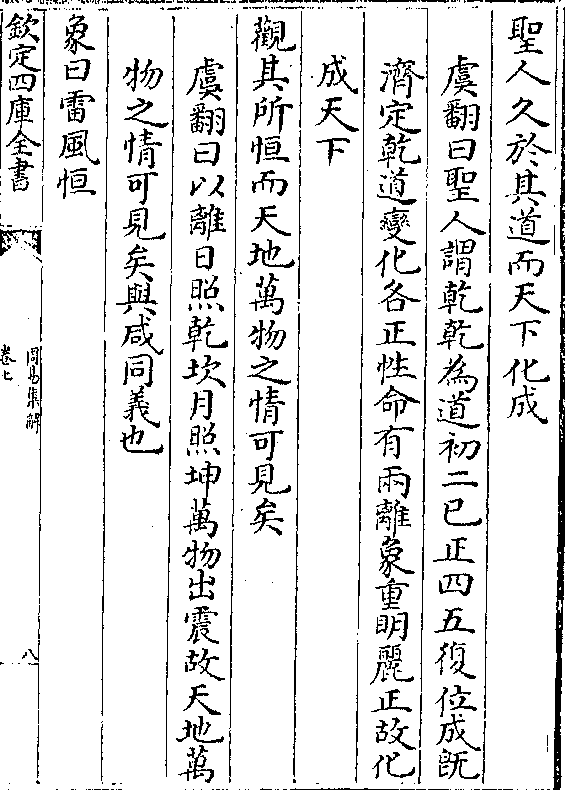 聖人久於其道而天下化成
虞翻曰聖人謂乾乾為道初二已正四五復位成既
濟定乾道變化各正性命有兩離象重明麗正故化
成天下
觀其所恒而天地萬物之情可見矣
虞翻曰以離日照乾坎月照坤萬物出震故天地萬
物之情可見矣與咸同義也
象曰雷風恒
欽定四庫全書
周易集解
卷七
八